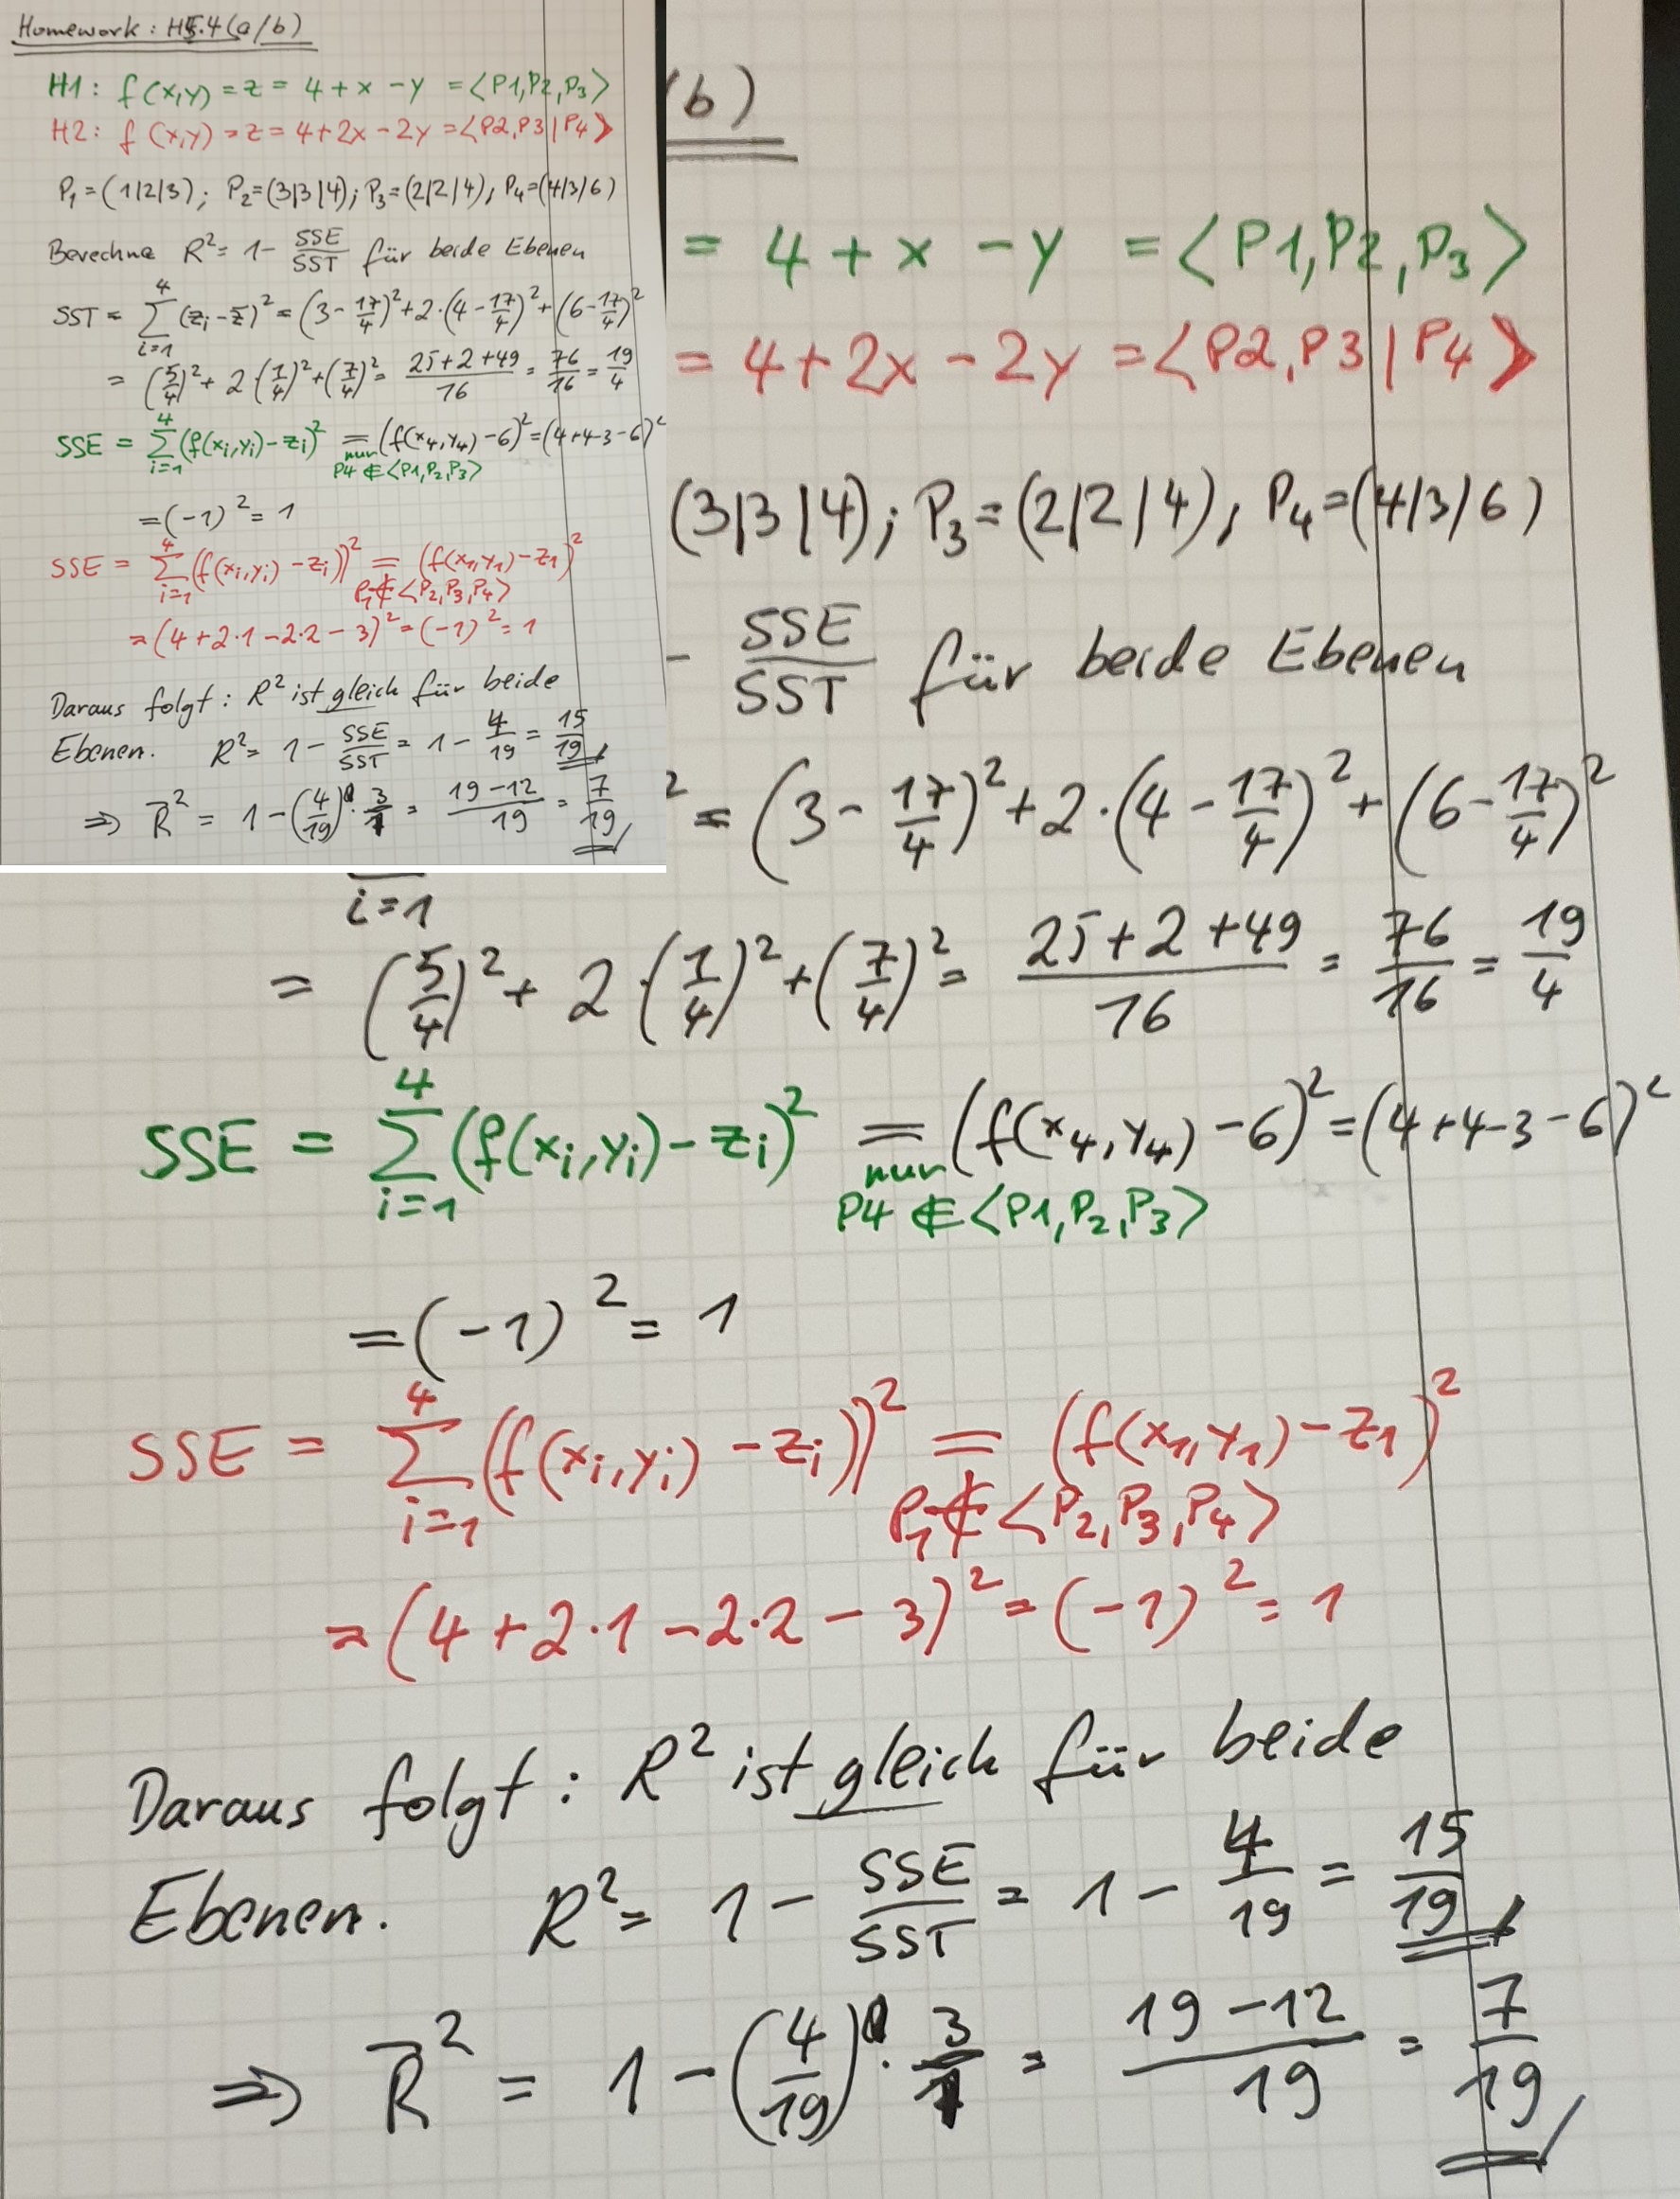 Homework: H5.4(a/b)
H1: f(x,y) = z = 4 + x - y = ⟨P1,P2,P3⟩
H2: f(x,y) = z = 4+2x-2y = ⟨P2,P3|P4⟩
P1=(1|2|3); P2=(3|3|4); P3=(2|2|4), P4=(4/3/6)
Berechne R² = 1 - SSE/SST für beide Ebenen
SST = Σ_{i=1}^{4} (zi - z̄)² = (3 - 17/4)² + 2·(4 - 17/4)² + (6 - 17/4)²
= (5/4)² + 2·(1/4)² + (7/4)² = (25+2+49)/16 = 76/16 = 19/4
SSE = Σ_{i=1}^{4} (f(xi,yi) - zi)² = (f(x4,y4) - 6)² = (4+4-3-6)²
nur
P4 ∉ ⟨P1,P2,P3⟩
= (-1)² = 1
SSE = Σ_{i=1}^{4} (f(xi,yi) - zi))² = (f(x1,y1) - z1)²
P1 ∉ ⟨P2,P3,P4⟩
= (4+2·1-2·2-3)² = (-1)² = 1
Daraus folgt: R² ist gleich für beide
Ebenen. R² = 1 - SSE/SST = 1 - 4/19 = 15/19
⇒ R̄² = 1 - (4/19)·3/1 = (19-12)/19 = 7/19
(b)
= 4 + x - y = ⟨P1,P2,P3⟩
= 4+2x-2y = ⟨P2,P3|P4⟩
(3|3|4); P3=(2|2|4), P4=(4/3/6)
- SSE/SST für beide Ebenen
² = (3 - 17/4)² + 2·(4 - 17/4)² + (6 - 17/4)²
i=1
= (5/4)² + 2·(1/4)² + (7/4)² = (25+2+49)/16 = 76/16 = 19/4
SSE = Σ_{i=1}^{4} (f(xi,yi) - zi)² = (f(x4,y4) - 6)² = (4+4-3-6)²
nur
P4 ∉ ⟨P1,P2,P3⟩
= (-1)² = 1
SSE = Σ_{i=1}^{4} (f(xi,yi) - zi))² = (f(x1,y1) - z1)²
P1 ∉ ⟨P2,P3,P4⟩
= (4+2·1-2·2-3)² = (-1)² = 1
Daraus folgt: R² ist gleich für beide
Ebenen. R² = 1 - SSE/SST = 1 - 4/19 = 15/19
⇒ R̄² = 1 - (4/19)·3/1 = (19-12)/19 = 7/19